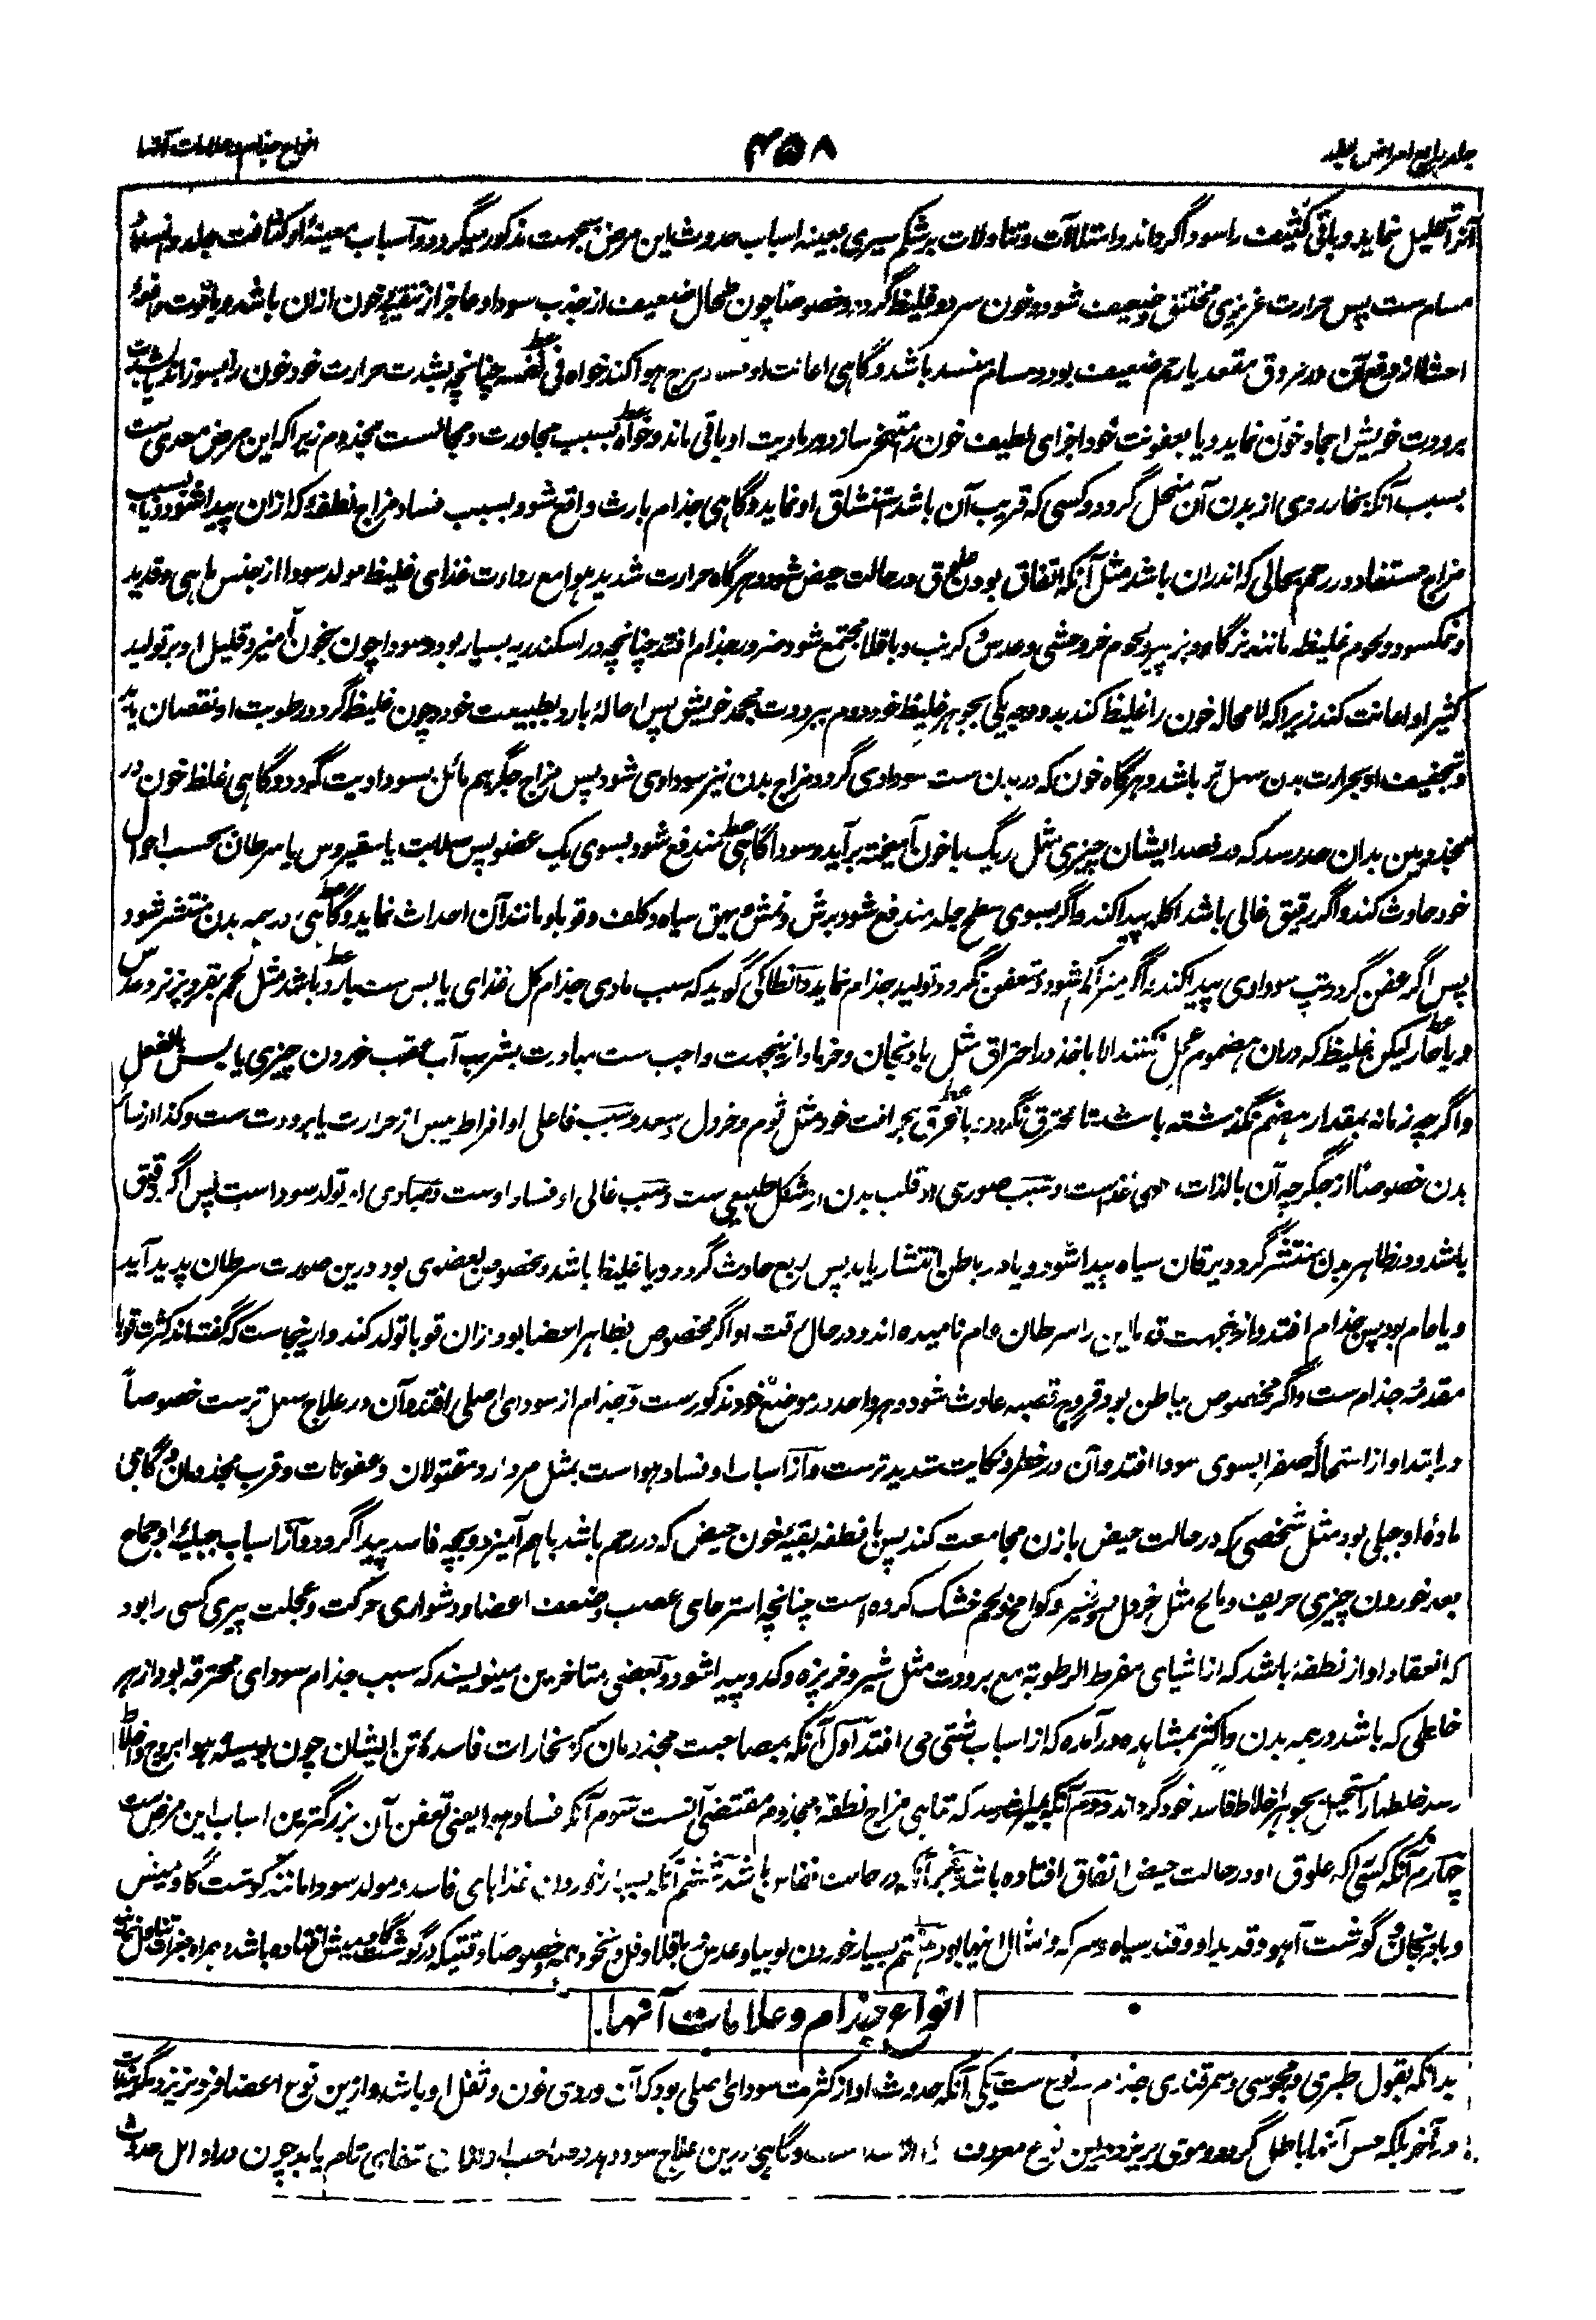 جلد چهارم امراض جلد
۴۵۸
انواع جذام و علامات آنها
آنرا تحلیل نماید و باقی کثیف را سودا گرداند و امتلاآت و تناولات بر شکم سیری بعینه اسباب حدوث این مرض بجهت مذکور میگردد و آسباب معینهٔ او کثافت جلد و انسداد
مسام ست پس حرارت غریزی مختنق و ضعیف شود و خون سرد و غلیظ گردد و خصوصا چون طحال ضعیف از جذب سودا و عاجز از تنقیهٔ خون ازان باشد و یا قوت دافعهٔ
احشا از دفع آن در عروق مقعد یا رحم ضعیف بود و مسام منسد باشد و گاهی اعانت او هوا کند خواه فی نفسه چنانچه بشدت حرارت خود خون را بسوزاند یا بشدت
برودت خویش اجماد خون نماید و یا بعفونت خود اجزای لطیف خون را متبخر سازد و رمادیت او باقی ماند و خواه بسبب مجاورت و مجالست مجذوم زیرا که این مرض معدی ست
بسبب آنکه بخار ردی از بدن آن منحل گردد و کسی که قریب آن باشد استنشاق او نماید و گاهی جذام بارث واقع شود بسبب فساد مزاج نطفهٔ که ازان پیدا شود و یا بسبب
مزاج مستفاد در رحم بحالی که اندران باشد مثل آنکه اتفاق بودن علوق در حالت حیض شود و هرگاه حرارت شدید هوا مع رداءت غذای غلیظ مولد سودا از جنس ماهی و قدید
و نمکسود و لحوم غلیظه مانند نرگاو و بز پیر و لحوم خر وحشی و عدس و کرنب و باقلا مجتمع شود ضرور جذام افتد چنانچه در اسکندریه بسیار بود و سودا چون بخون آمیزد قلیل او بر تولید
کثیر او اعانت کند زیرا که لا محاله خون را غلیظ کند بدو وجه یکی بجوهر غلیظ خود دوم ببرودت مجمد خویش پس احالهٔ بارد بطبیعت خود و چون غلیظ گردد رطوبت او نقصان یابد
و تجفیف او بحرارت بدن سهل تر باشد و هرگاه خون که در بدن ست سوداوی گردد مزاج بدن نیز سوداوی شود پس مزاج جگر هم مائل بسوداویت گردد و گاهی غلظ خون در
مجذومین بدان حد رسد که در فصد ایشان چیزی مثل ریگ با خون آمیخته برآید و سودا گاهی مندفع شود بسوی یک عضو پس صلابت یا سقیروس یا سرطان بحسب احوال
خود حادث کند و اگر رقیق غالی باشد اکله پیدا کند و اگر بسوی سطح جلد مندفع شود برش و نمش و بهق سیاه و کلف و قوبا و مانند آن احداث نماید و گاهی در همه بدن منتشر شود
پس اگر عفن گردد تپ سوداوی پیدا کند و اگر متراکم شود و متعفن نگردد تولید جذام نماید و آنطاکی گوید که سبب مادی جذام کل غذای یابس ست بارد باشد مثل لحم بقر و بز نر و عدس
و یا حار لیکن غلیظ که دران هضوم عمل نکنند الا باخذ در احتراق مثل بادنجان و خرما و ازینجهت واجب ست مبادرت بشرب آب عقب خوردن چیزی یابس بالفعل
و اگر چه زمانه بمقدار هضم نگذشته باشد تا محترق نگردد یا محرق بحرافت خود مثل ثوم و خردل و سبب فاعلی او افراط یبس از حرارت یا برودت ست و کذا از سائر
بدن خصوصاً از جگر چه آن بالذات ست و سبب صوری او قلب بدن از شکل طبیعی ست و سبب غائی او فساد اوست و مبادی او تولد سودا ست پس اگر رقیق
باشد و در ظاهر بدن منتشر گردد یرقان سیاه پیدا شود و یا در باطن انتشار یابد پس ربع حادث گردد و یا غلیظ باشد و مخصوص بعضوی بود درین صورت سرطان پدید آید
و یا عام بود پس جذام افتد و ازینجهت قدما این را سرطان عام نامیده اند و در حال رقت او اگر مخصوص بظاهر اعضا بود ازان قوبا تولد کند و ازینجاست که گفته اند کثرت قوبا
مقدمهٔ جذام ست و اگر مخصوص بباطن بود قروح قصبه حادث شود و هر واحد در موضع خود مذکور ست و جذام از سودای اصلی افتد و آن در علاج سهل تر ست خصوصاً
در ابتدا و از استحالهٔ صفرا بسوی سودا افتد و آن در خطر و نکایت شدید تر ست و از اسباب او فساد هواست بمثل مردار و مقتولان و عفونات و قرب مجذومان و گاهی
مادهٔ او جبلی بود مثل شخصی که در حالت حیض با زن مجامعت کند پس با نطفه بقیهٔ خون حیض که در رحم باشد باهم آمیزد و بچه فاسد پیدا گردد و از اسباب جبلیهٔ او جماع
بعد خوردن چیزی حریف و مالح مثل خردل و پنیر و کوامخ و لحم خشک کرده است چنانچه استرخای عصب و ضعف اعضا و دشواری حرکت و عجلت پیری کسی را بود
که انعقاد او از نطفهٔ باشد که از اشیای مفرط الرطوبة مع برودت مثل شیر و خرپزه و کدو پیدا شود و بعضی متاخرین مینویسند که سبب جذام سودای محترقه بود از هر
خلطی که باشد در همه بدن و اکثر بمشاهده درآمده که از اسباب شتی می افتد اول آنکه بمصاحبت مجذومان که بخارات فاسده تن ایشان چون بوسیلهٔ هوا بروح و اخلاط
رسد خلطها را مستحیل بجوهر اخلاط فاسد خود گرداند دوم آنکه بمیراث رسد که تباهی مزاج نطفهٔ مجذوم مقتضی آنست سوم آنکه فساد هوا یعنی تعفن آن بزرگترین اسباب این مرض ست
چهارم آنکه کسی را که علوق او در حالت حیض اتفاق افتاده باشد پنجم آنکه در حالت نفاس باشد ششم آنکه بسبب خوردن غذاهای فاسد و مولد سودا مانند گوشت گاومیش
و بادنجان و گوشت آهو و قدید او و قند سیاه و سرکه و امثال اینها بود هفتم بسیار خوردن لوبیا و عدس و باقلا و فول و نخود همه خصوصاً وقتیکه در گوشت گاومیش افتاده باشد
انواع جذام و علامات آنها.
بدانکه بقول طبری و مجوسی و سمرقندی جذام سه نوع ست یکی آنکه حدوث او از کثرت سودای اصلی بود که آن دردی خون و ثفل او باشد و ازین نوع اعضا فرو نریزد مگر
در آخر بلکه حس آنها باطل گردد و موی بریزد و این نوع معروف و گاهی درین علاج سود دهد و صاحب او شفای تام یابد چون در اوائل حدوث